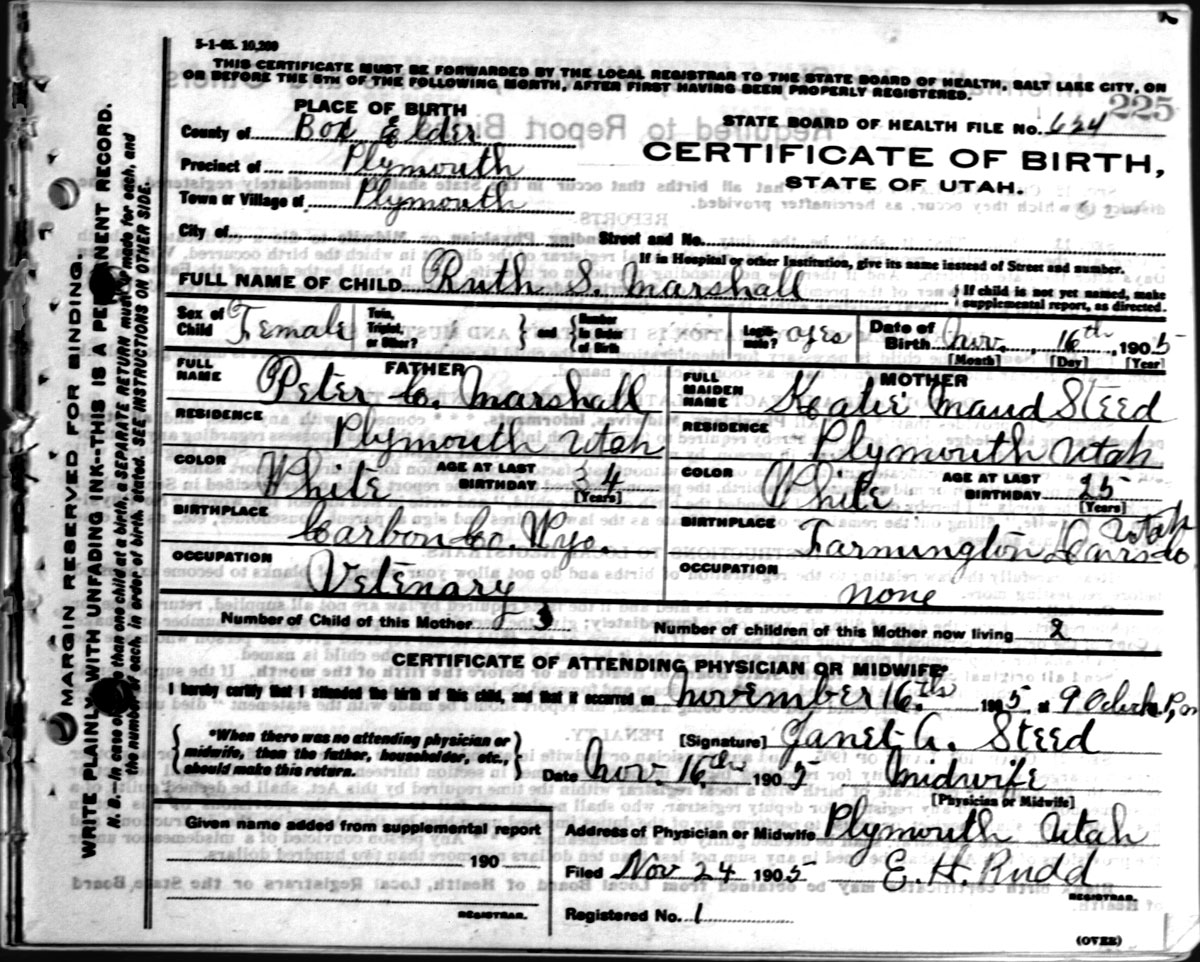 5-1-05. 10,200
THIS CERTIFICATE MUST BE FORWARDED BY THE LOCAL REGISTRAR TO THE STATE BOARD OF HEALTH, SALT LAKE CITY, ON
OR BEFORE THE 5TH OF THE FOLLOWING MONTH, AFTER FIRST HAVING BEEN PROPERLY REGISTERED.
225
PLACE OF BIRTH
STATE BOARD OF HEALTH FILE No. 624
County of Box Elder
CERTIFICATE OF BIRTH,
Precinct of Plymouth
STATE OF UTAH.
Town or Village of Plymouth
City of Street and No.
If in Hospital or other Institution, give its name instead of Street and number.
FULL NAME OF CHILD Ruth S. Marshall
If child is not yet named, make
supplemental report, as directed.
Sex of Child Female Twin, Triplet, or Other? and Number in Order of Birth Legitimate? yes Date of Birth Nov. 16th, 1905
[Month] [Day] [Year]
FATHER
FULL NAME Peter C. Marshall
RESIDENCE
Plymouth Utah
COLOR White AGE AT LAST BIRTHDAY 34
[Years]
BIRTHPLACE
Carbon Co. Wyo.
OCCUPATION
Vetinary
MOTHER
FULL MAIDEN NAME Katie Maud Steed
RESIDENCE
Plymouth Utah
COLOR White AGE AT LAST BIRTHDAY 25
[Years]
BIRTHPLACE
Farmington Davis Co Utah
OCCUPATION
none
Number of Child of this Mother 3 Number of children of this Mother now living 2
CERTIFICATE OF ATTENDING PHYSICIAN OR MIDWIFE*
I hereby certify that I attended the birth of this child, and that it occurred on November 16th 1905, at 9 Oclock P, m
*When there was no attending physician or
midwife, then the father, householder, etc.,
should make this return.
[Signature] Janet A. Steed
Date Nov 16th 1905 Midwife
[Physician or Midwife]
Given name added from supplemental report
190
REGISTRAR.
Address of Physician or Midwife Plymouth Utah
Filed Nov 24 1905 E. H. Rudd
REGISTRAR.
Registered No. 1
(OVER)
MARGIN RESERVED FOR BINDING.
WRITE PLAINLY WITH UNFADING INK--THIS IS A PERMANENT RECORD.
N. B. In case of more than one child at a birth, a SEPARATE RETURN must be made for each, and
the number of each, in order of birth, stated. SEE INSTRUCTIONS ON OTHER SIDE.